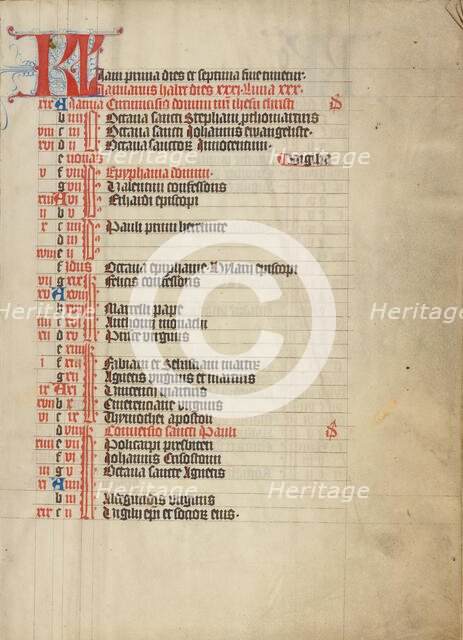 KL Iani prima dies et septima fine timetur.
Ianuarius habet dies xxxi. Luna xxx.
xix A Ianuarii Circumcisio domini nostri ihesu christi
b iiii Octaua sancti Stephani prthomartiris
viii c iii Octaua sancti Johannis ewangeliste.
xvi d ii Octaua sanctorum Innocentum.
e nonas Vigilia
v f viii Epyphania domini.
g vii Valentini confessoris
xiii A vi Erhardi episcopi
ii b v
x c iiii Pauli primi heremite
d iii
xviii e ii
f Idus Octaua epiphanie. Hylarii episcopi
vii g xix Felicis confessoris
xv A xviii
b xvii Marcelli pape
iiii c xvi Anthonii monachi
xii d xv Prisce virginis
e xiiii
i f xiii Fabiani et Sebastiani martirum
g xii Agnetis virginis et martiris
ix A xi Vincentii martiris
xvii b x Emerenciane virginis
vi c ix Thymothei apostoli
d viii Conuersio sancti Pauli
xiiii e vii Policarpi presbiteri
f vi Johannis Crisostomi
iii g v Octaua sancte Agnetis
xi A iiii
b iii Aldegundis virginis
xix c ii Virgilii epi et socior eius.
Heritage
Heritage
Heritage
Heritage
Heritage
Heritage